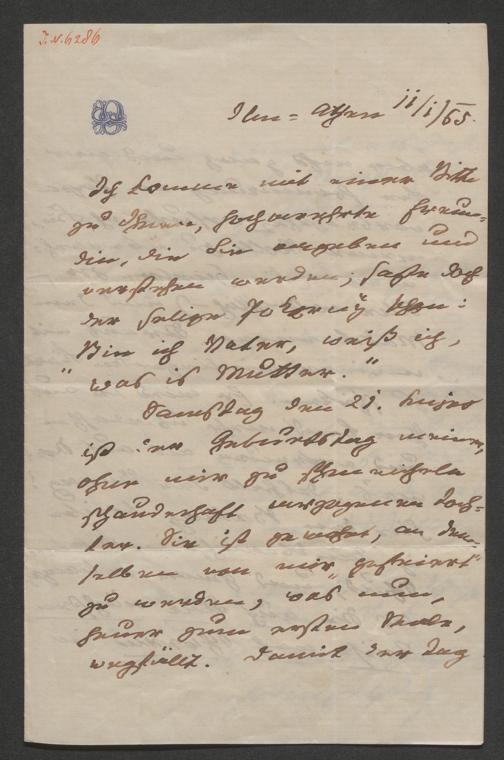 I.N.6286
Ilm = Athen 11/1/65.
Ich komme mit einer Bitte
zu Ihnen, hochverehrte Freun-
din, die Sie vergeben und
verstehen werden; sagte doch
der selige schon:
"Bin ich Vater, weiß ich,
was is Mutter."
Samstag den 21. hujus
ist der Geburtstag meiner,
ohne mir zu schmeicheln
schauderhaft verzogenen Toch-
ter. Sie ist gewohnt, an dem-
selben von mir "gefeiert"
zu werden, was nun,
heuer zum ersten Male,
wegfällt. Damit der Tag